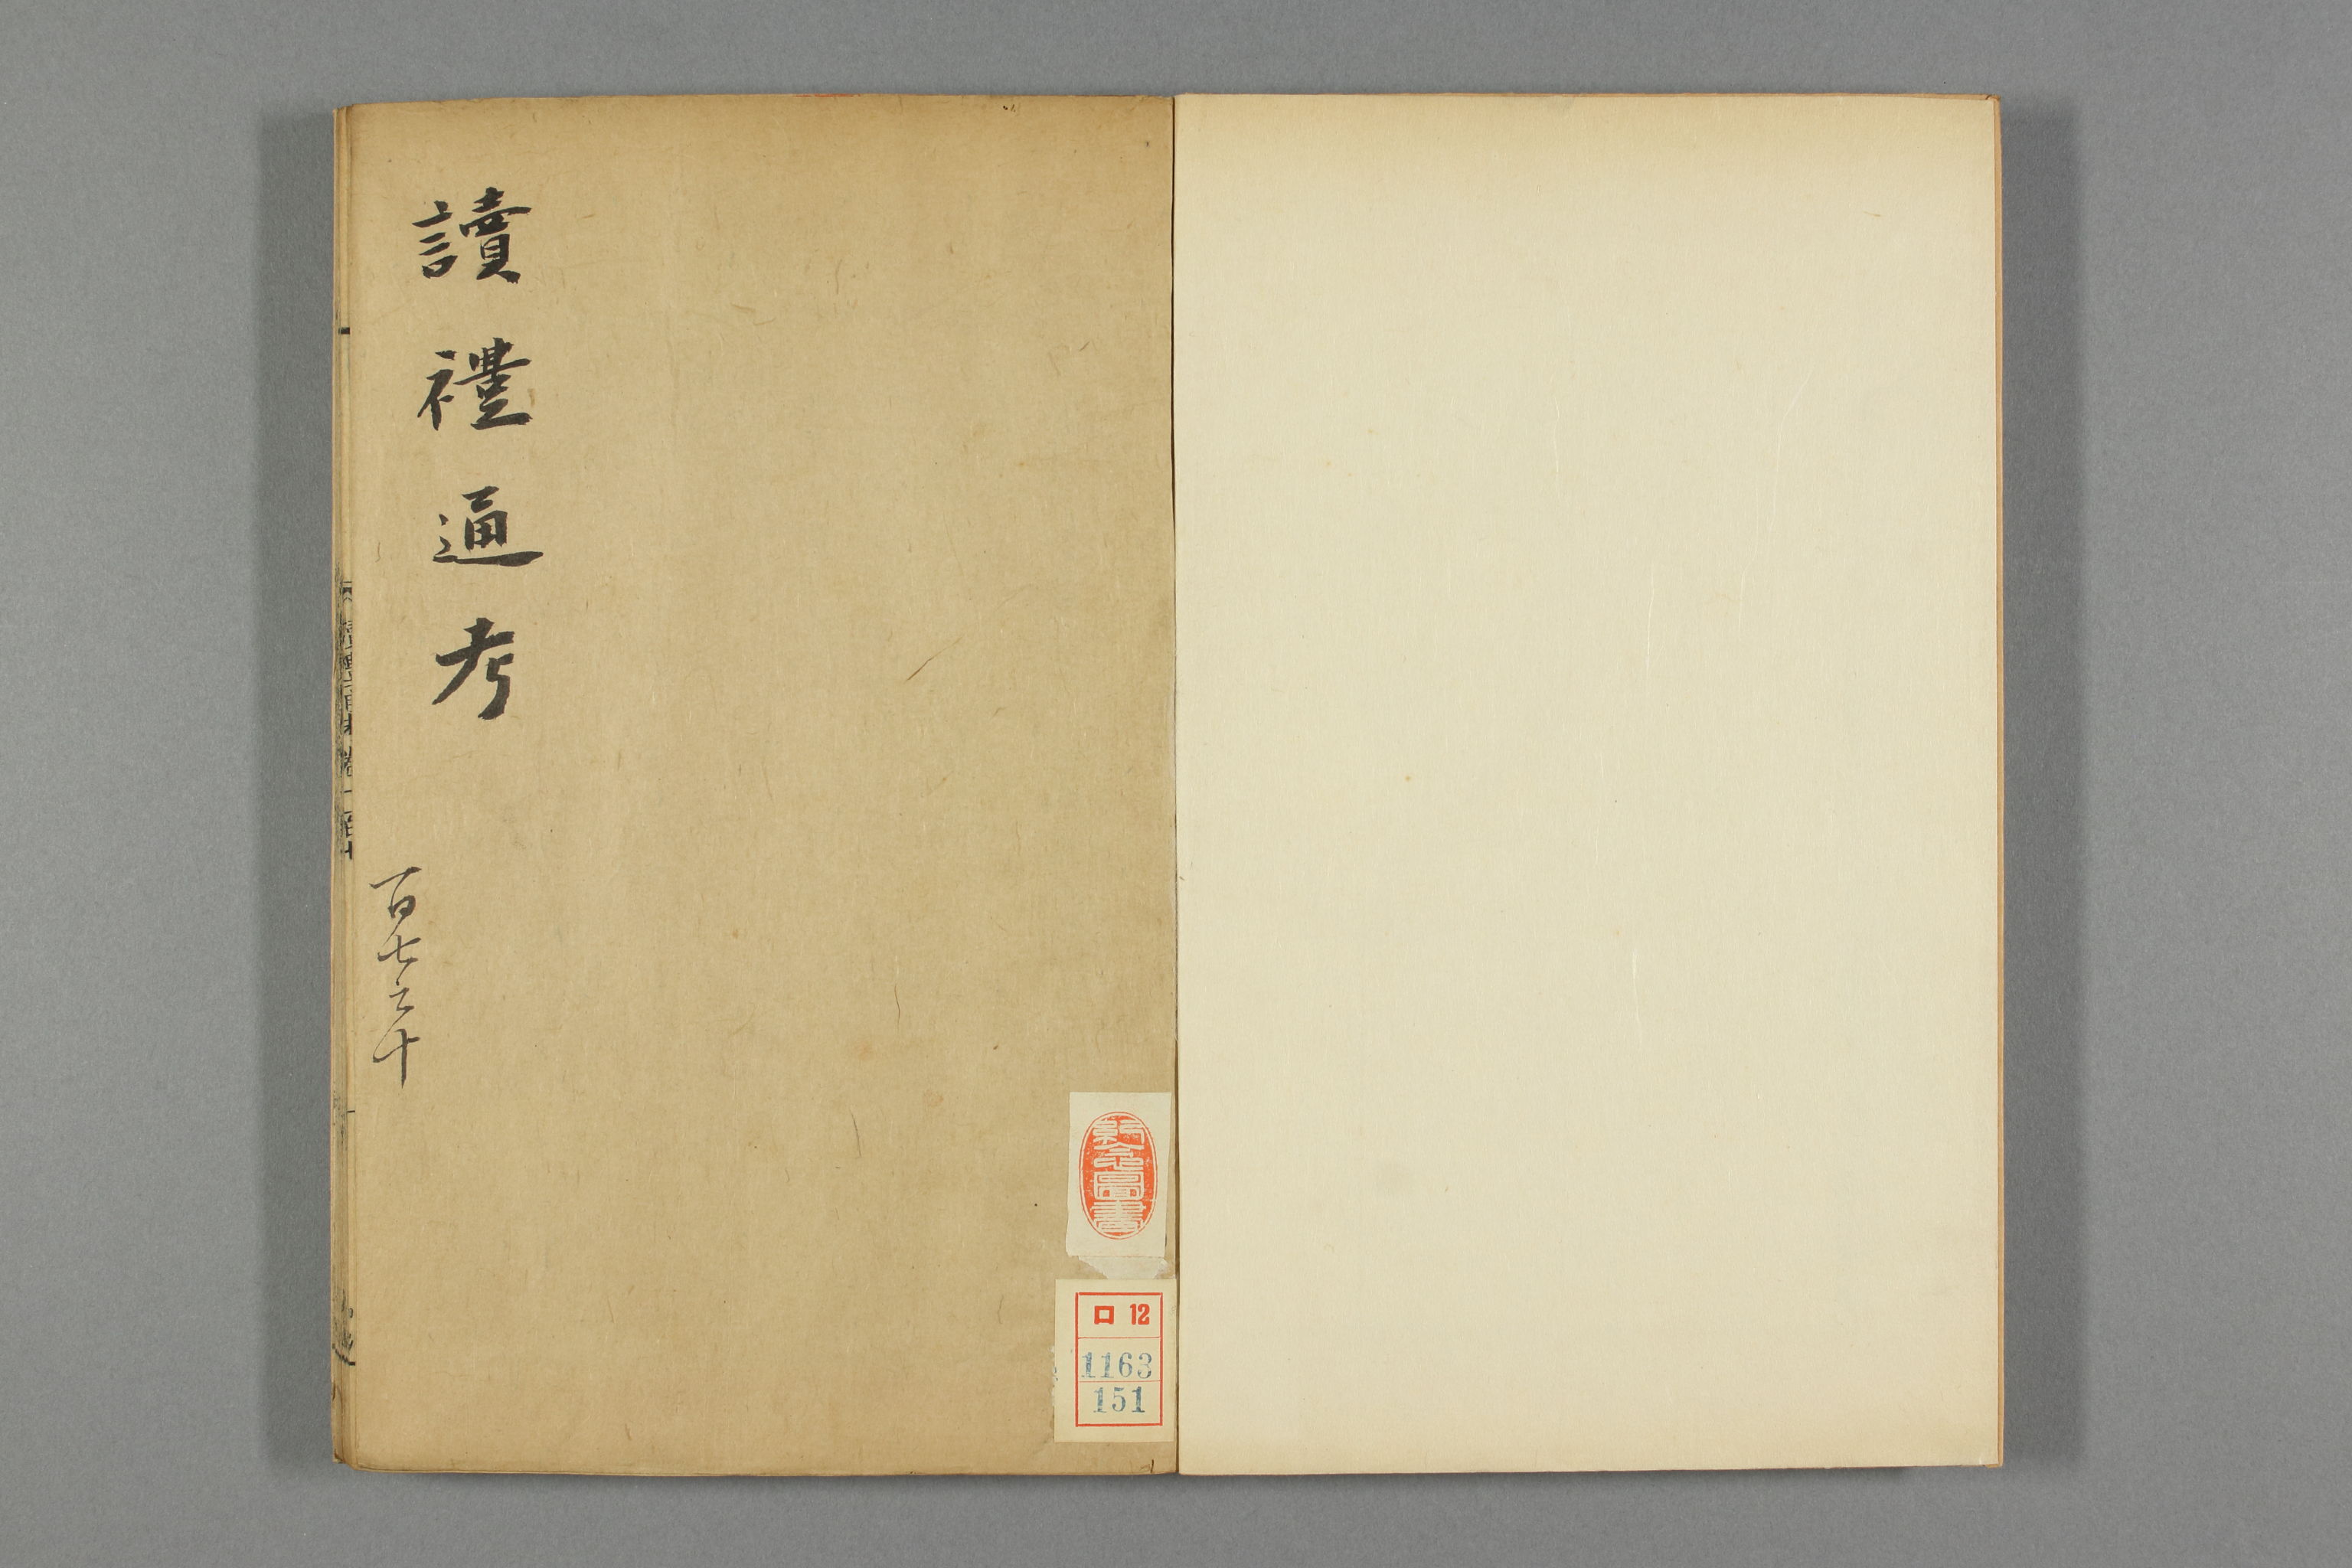 讀禮通考
百七之十
ロ 12
1163
151